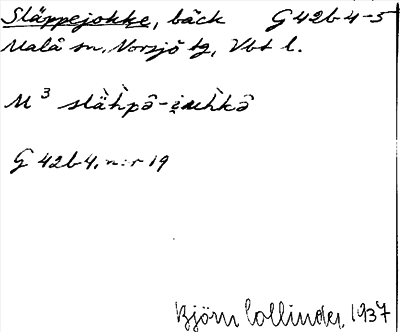 Släppejokke, bäck G 42b 4-5
Malå sn, Norsjö tg, Vbt l.
M 3 slä̀h̀pâ-
G 42b 4, n:r 19
Björn Collinder, 1937